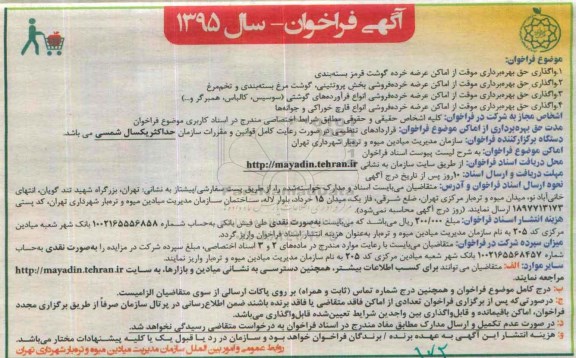 آگهی فراخوان - سال ۱۳۹۵
موضوع فراخوان:
۱.واگذاری حق بهره‌برداری موقت از اماکن عرضه خرده گوشت قرمز بسته‌بندی
۲.واگذاری حق بهره‌برداری موقت از اماکن عرضه خرده‌فروشی بخش پروتئینی، گوشت مرغ بسته‌بندی و تخم‌مرغ
۳.واگذاری حق بهره‌برداری موقت از اماکن عرضه خرده‌فروشی انواع فرآورده‌های گوشتی (سوسیس، کالباس، همبرگر و...)
۴.واگذاری حق بهره‌برداری موقت از اماکن عرضه خرده‌فروشی انواع قارچ خوراکی و جوانه‌ها
اشخاص مجاز به شرکت در فراخوان: کلیه اشخاص حقیقی و حقوقی مطابق شرایط اختصاصی مندرج در اسناد کاربری موضوع فراخوان
مدت حق بهره‌برداری از اماکن موضوع فراخوان: قراردادهای تنظیمی در صورت رعایت کامل قوانین و مقررات سازمان حداکثر یکسال شمسی می باشد.
دستگاه برگزارکننده فراخوان: سازمان مدیریت میادین میوه و تره‌بار شهرداری تهران
اماکن موضوع فراخوان: به شرح لیست پیوست اسناد فراخوان
محل دریافت اسناد فراخوان: از طریق سایت سازمان به نشانی http://mayadin.tehran.ir
مهلت دریافت و ارسال اسناد: ۱۰ روز پس از تاریخ درج آگهی
نحوه ارسال اسناد فراخوان و آدرس: متقاضیان می‌بایست اسناد و مدارک خواسته‌شده را، از طریق پست سفارشی/پیشتاز به نشانی: تهران، بزرگراه شهید تند گویان، انتهای
خانی‌آباد نو، میدان میوه و تره‌بار مرکزی تهران، ضلع شرقی، فاز یک، میدان ۱۵ خرداد، بلوار لاله، ساختمان سازمان مدیریت میادین میوه و تره‌بار شهرداری تهران، کد پستی
۱۸۹۷۷۱۳۱۷۳ ارسال نمایند. (روز درج آگهی محاسبه نمی‌شود).
هزینه انتشار اسناد فراخوان: مبلغ ۲۰۰/۰۰۰ ریال می‌باشد که می‌بایست به‌صورت نقدی طی فیش بانکی به‌حساب شماره ۱۰۰۲۱۶۵۵۵۶۸۵۸ بانک شهر شعبه میادین
مرکزی کد ۲۰۵ به نام سازمان مدیریت میادین میوه و تره‌بار به‌عنوان هزینه انتشار اسناد فراخوان واریز گردد.
میزان سپرده شرکت در فراخوان: متقاضیان می‌بایست با رعایت موارد مندرج در ماده‌های ۲ و ۳ اسناد اختصاصی، مبلغ سپرده شرکت در مزایده را به‌صورت نقدی به‌حساب
شماره ۱۰۰۲۱۶۵۵۶۸۴۵۷ بانک شهر شعبه میادین مرکزی کد ۲۰۵ به نام سازمان مدیریت میادین میوه و تره‌بار واریز نمایند.
سایر موارد: الف: متقاضیان می توانند برای کسب اطلاعات بیشتر، همچنین دسترسی به نشانی میادین و بازارها، به سایت http://mayadin.tehran.ir
مراجعه نمایند.
ب: درج کامل موضوع فراخوان و همچنین درج شماره تماس (ثابت و همراه) بر روی پاکات ارسالی از سوی متقاضیان الزامیست.
ج: درصورتی‌که پس از برگزاری فراخوان تعدادی از اماکن فاقد متقاضی یا فاقد برنده باشند ضمن اطلاع‌رسانی در پرتال سازمان صرفاً از طریق برگزاری مجدد
فراخوان، اماکن باقیمانده و قابل‌واگذاری بین واجدین شرایط تعیین‌شده قابل‌واگذاری می‌باشد.
د: در صورت عدم تکمیل و ارسال مدارک مطابق مفاد مندرج در اسناد فراخوان به درخواست متقاضی رسیدگی نخواهد شد.
ه: هزینه انتشار این آگهی به عهده برنده / برندگان فراخوان خواهد بود و سازمان در رد یا قبول یک یا کلیه پیشنهادات مختار می‌باشد.
روابط عمومی و امور بین الملل سازمان مدیریت میادین میوه و تره‌بار شهرداری تهران